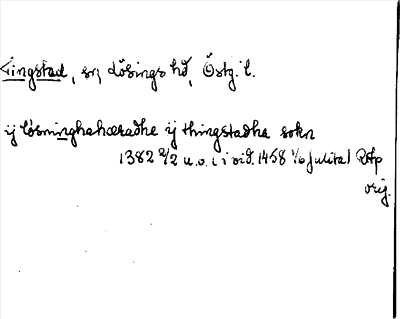 Tingstad, sn, Lösings hd, Östg. l.
ij løsminghahæradhe ij thingstadha sokn
1382 2/2 u.o. i vid. 1458 1/6 Julita RAp
orig.